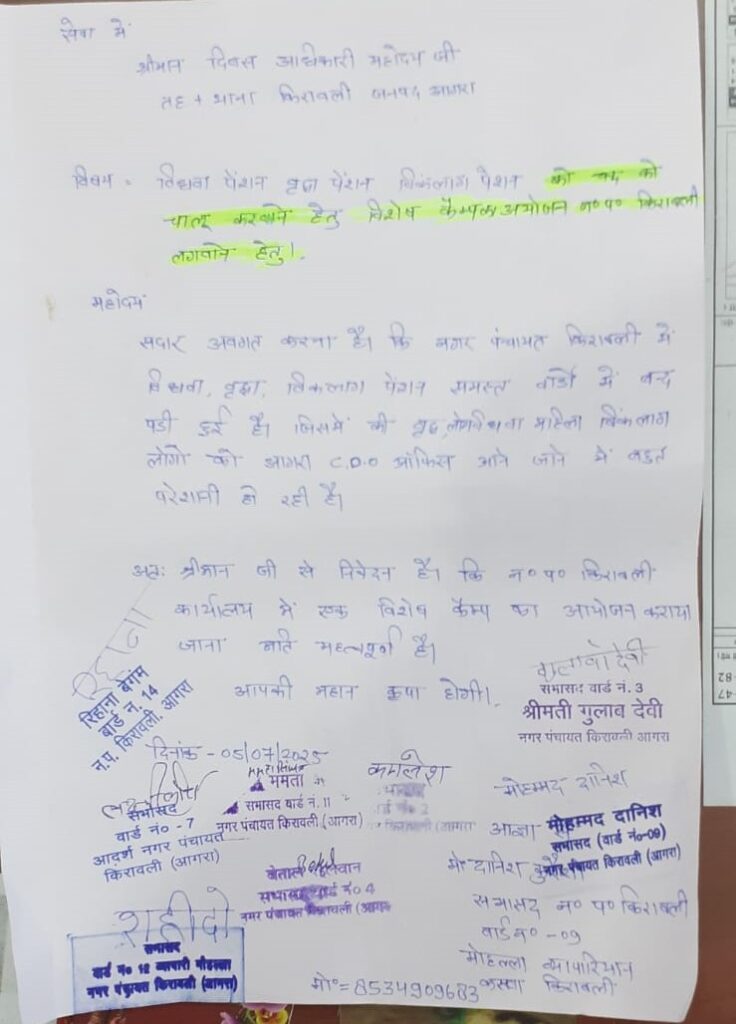 सेवा में
श्रीमान दिवस अधिकारी महोदय जी
तह + थाना किरावली जनपद आगरा
विषय = विधवा पेंशन वृद्धा पेंशन विकंलाग पेंशन को बन्द को
चालू करवाने हेतु विशेष कैम्पका अयोजन न०प० किरावली
लगवाने हेतु।
महोदय
सदार अवगत करना है। कि नगर पंचायत किरावली में
विधवा, वृद्धा, विकलाग पेंशन समस्त वार्डो में बन्द
पडी हुई है। जिसमें की वृद्ध लोग विधवा महिला विकंलाग
लोगो को आगरा C.D.O ऑफिस आने जाने में बहुत
परेशानी हो रही है।
अतः श्रीमान जी से निवेदन है। कि न०प० किरावली
कार्यालय में एक विशेष कैम्प का आयोजन कराया
जाना अति महत्वपूर्ण है।
आपकी महान कृपा होगी।
रिहाना बेगम
वार्ड न. 14
न.प. किरावली, आगरा
गुलाबो देवी
सभासद वार्ड नं. 3
श्रीमती गुलाव देवी
नगर पंचायत किरावली आगरा
दिनांक - 05/07/2025
सभासद
वार्ड नं० - 7
आदर्श नगर पंचायत
किरावली (आगरा)
ममता
सभासद वार्ड नं. 11
नगर पंचायत किरावली (आगरा)
कमलेश
किरावली (आगरा
मोहम्मद दानिश
मोहम्मद दानिश
सभासद (वार्ड नं०-09)
नगर पंचायत किरावली (आगरा)
सभासद वार्ड नं० 4
नगर पंचायत किरावली (आगरा
मो० दानिश कुरैशी
सभासद न० प० किरावली
वार्ड न० - 09
मोहल्ला व्यापारियान
कस्वा किरावली
मो०= 8534909683
शहीदो
सभासद
वार्ड नं० 12 व्यापारी मौहल्ला
नगर पंचायत किरावली (आगरा)